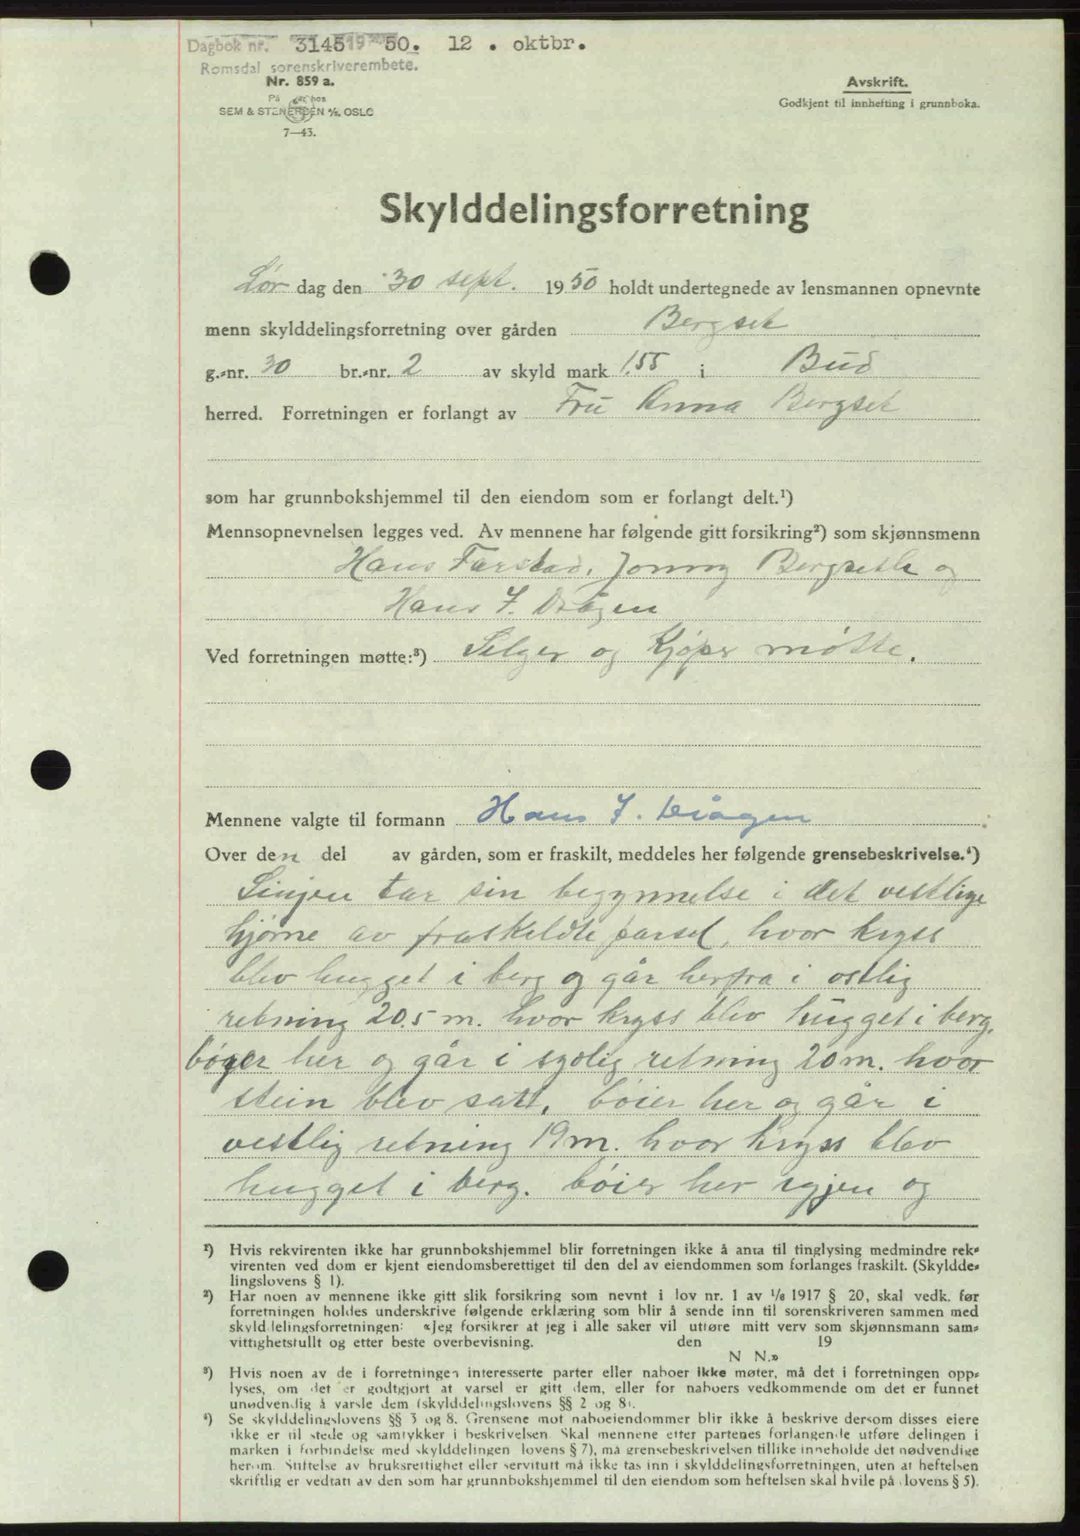 Dagbok nr. 3145 1950. 12. oktbr.
Romsdal sorenskriverembete.
Nr. 859 a.
På hos
SEM & STENERSEN A/S. OSLO
7—43.
Avskrift.
Godkjent til innhefting i grunnboka.
Skylddelingsforretning
Lør dag den 30 sept. 1950 holdt undertegnede av lensmannen opnevnte
menn skylddelingsforretning over gården Bergset
g.-nr. 30 br.-nr. 2 av skyld mark 1,55 i Bud
herred. Forretningen er forlangt av Fru Anna Bergset
som har grunnbokshjemmel til den eiendom som er forlangt delt.¹)
Mennsopnevnelsen legges ved. Av mennene har følgende gitt forsikring²) som skjønnsmenn
Hans Farstad, Jonny Bergseth og
Hans J. Drågen
Ved forretningen møtte:³) Selger og Kjøper møtte.
Mennene valgte til formann Hans J. Drågen
Over den del av gården, som er fraskilt, meddeles her følgende grensebeskrivelse.⁴)
Linjen tar sin begynnelse i det vestlige
hjørne av fraskeldte parsel, hvor kryss
blev hugget i berg og går herfra i ostlig
retning 20.5 m. hvor kryss blev hugget i berg,
bøyer her og går i sydlig retning 20 m. hvor
stein blev satt, bøier her og går i
vestlig retning 19 m. hvor kryss blev
hugget i berg. bøier her igjen og
¹) Hvis rekvirenten ikke har grunnbokshjemmel blir forretningen ikke å anta til tinglysing medmindre rek-
virenten ved dom er kjent eiendomsberettiget til den del av eiendommen som forlanges fraskilt. (Skyldde-
lingslovens § 1).
²) Har noen av mennene ikke gitt slik forsikring som nevnt i lov nr. 1 av 1/6 1917 § 20, skal vedk. før
forretningen holdes underskrive følgende erklæring som blir å sende inn til sorenskriveren sammen med
skylddelingsforretningen: «Jeg forsikrer at jeg i alle saker vil utføre mitt verv som skjønnsmann sam-
vittighetsfullt og etter beste overbevisning. den 19
N N.»
³) Hvis noen av de i forretningen interesserte parter eller naboer ikke møter, må det i forretningen opp-
lyses, om det er godtgjort at varsel er gitt dem, eller for naboers vedkommende om det er funnet
unødvendig å varsle dem (skylddelingslovens §§ 2 og 8).
⁴) Se skylddelingslovens §§ 3 og 8. Grensene mot naboeiendommer blir ikke å beskrive dersom disses eiere
ikke er til stede og samtykker i beskrivelsen. Skal mennene etter partenes forlangende utføre delingen i
marken i forbindelse med skylddelingen (lovens § 7), må grensebeskrivelsen tillike inneholde det nødvendige
herom. Stiftelse av bruksrettighet eller servitutt må ikke tas inn i skylddelingsforretningen, uten at heftelsen
skriftlig er vedtatt av den som har grunnbokshjemmel til den eiendom som heftelsen skal hvile på (lovens § 5).